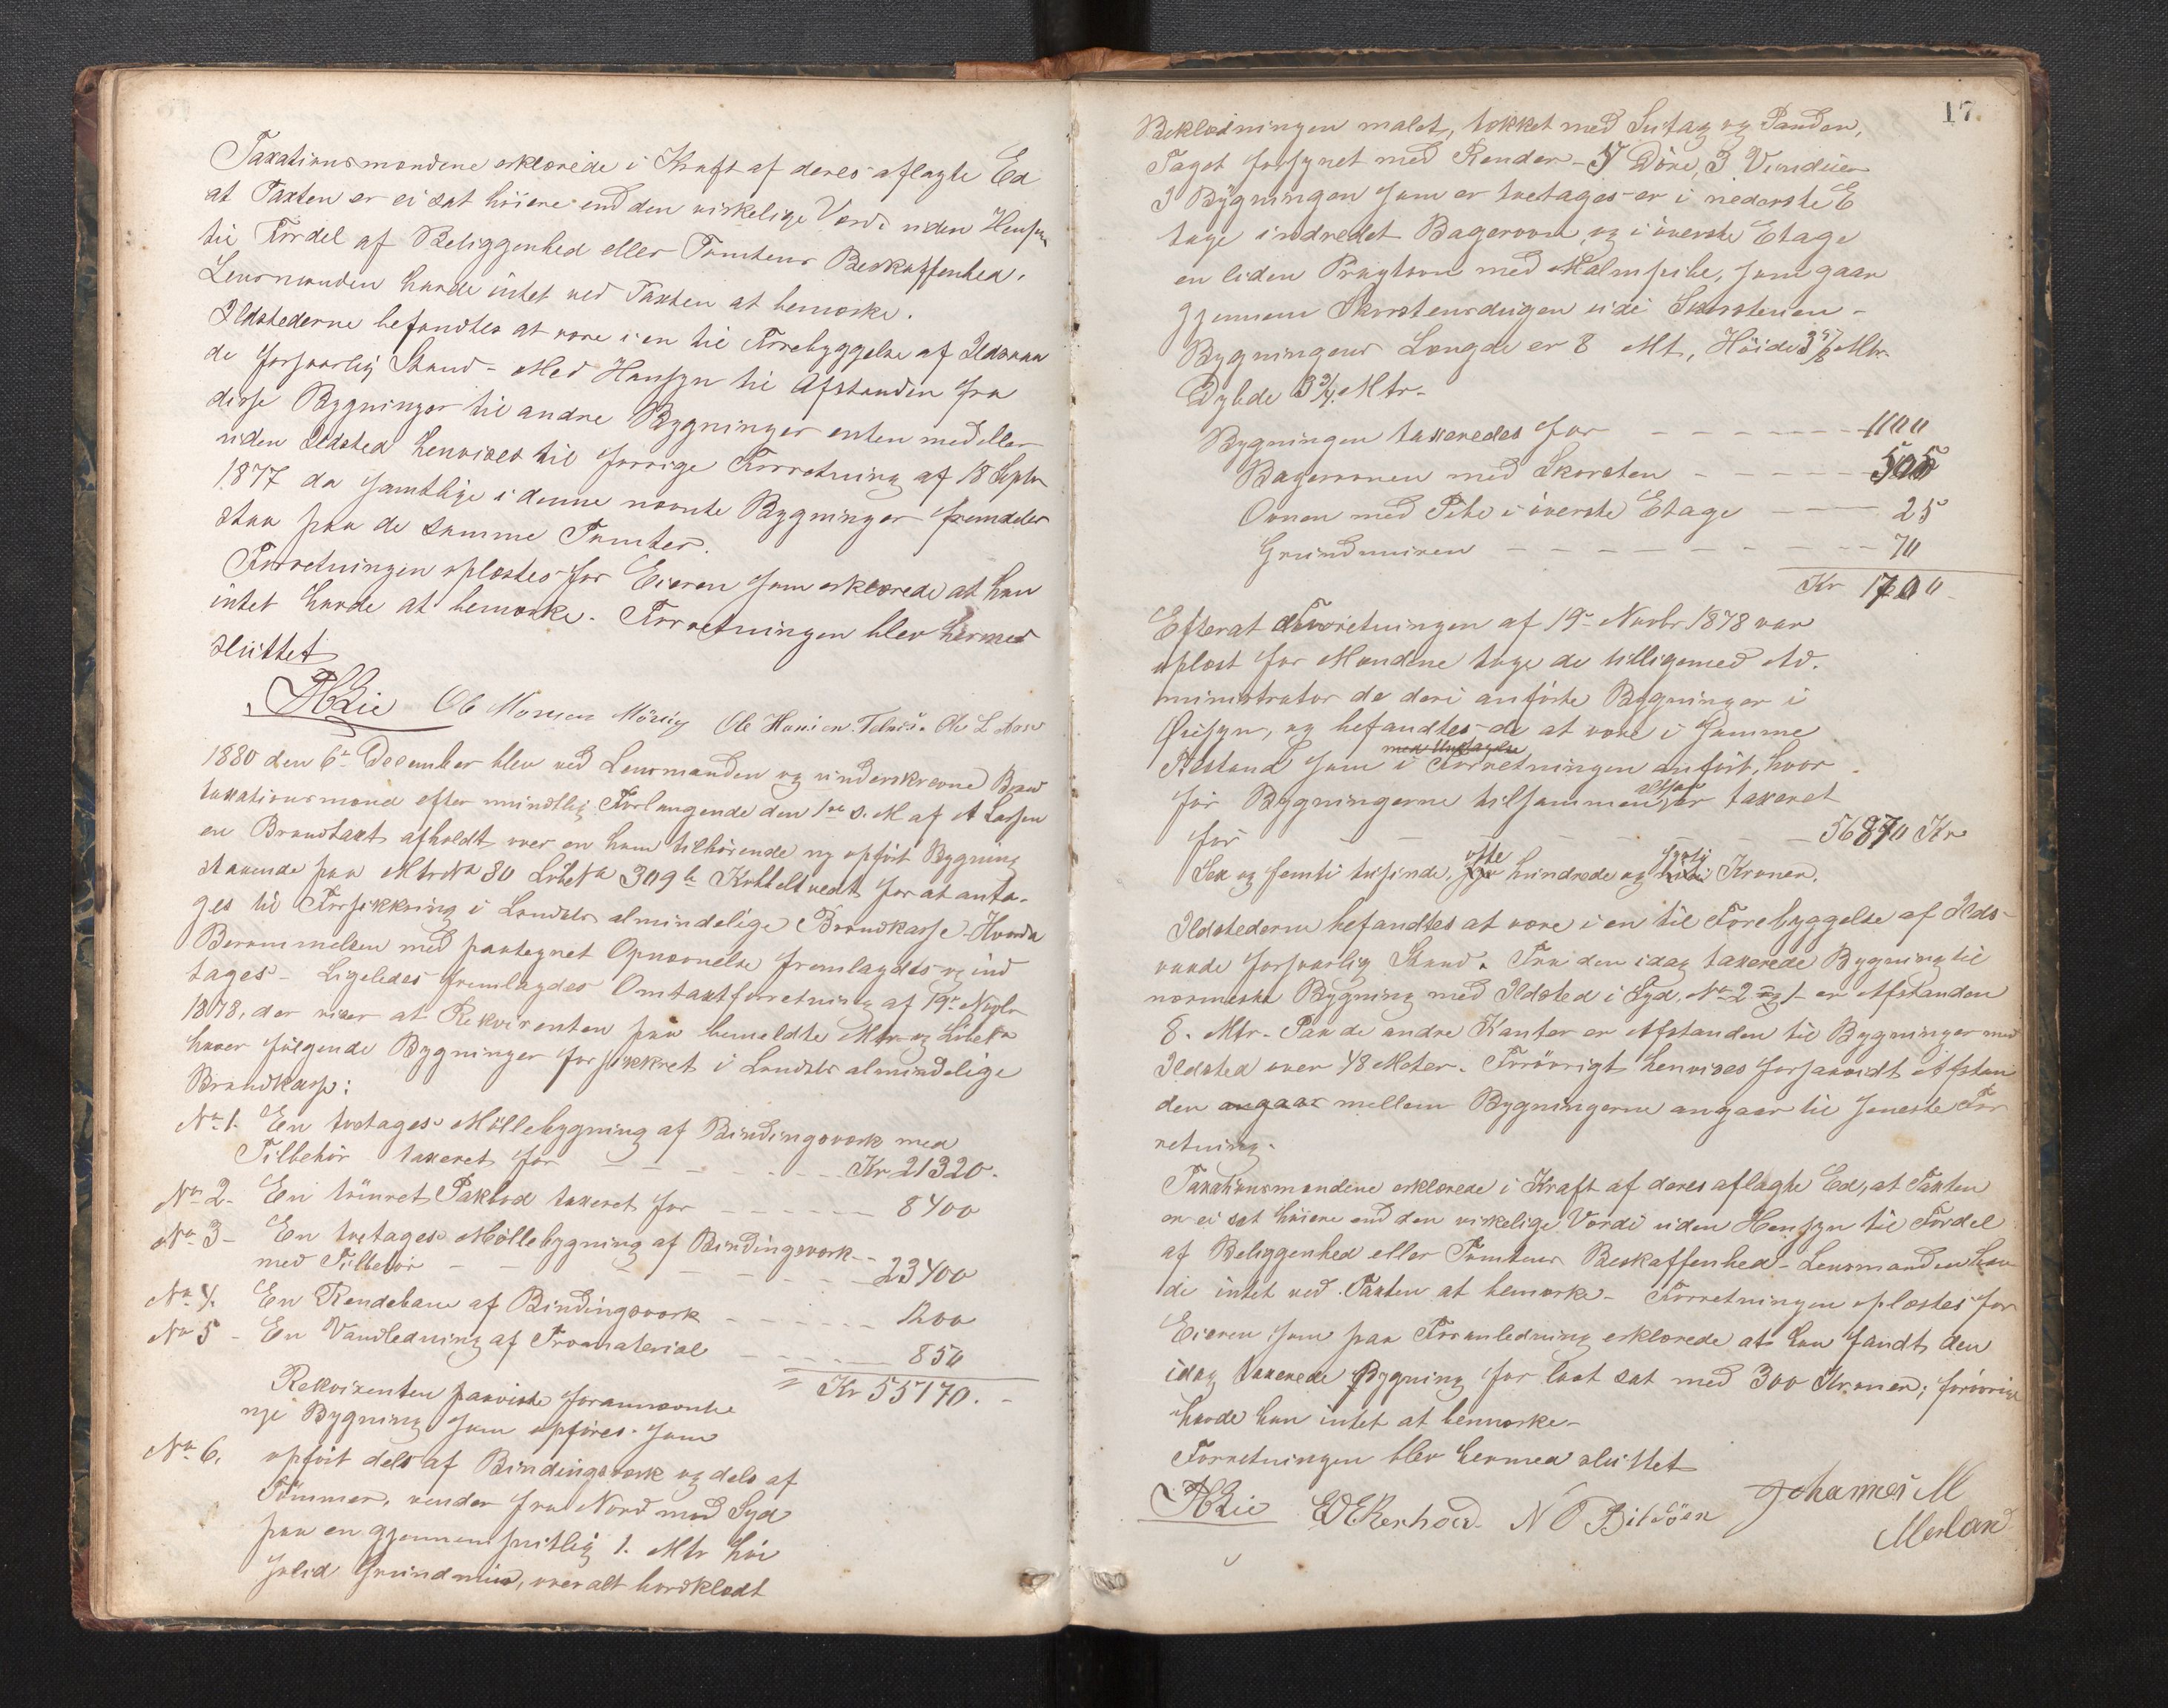 Taxationsmændene erklærede i Kraft af deres aflagte Ed
at Taxten er ei sat höiere end den virkelige Værdi uden Hensyn
til Fordel af Beliggenhed eller Tomtens Beskaffenhed.
Lensmanden havde intet ved Taxten at bemærke.
Ildstederne befandtes at være i en til Forebyggelse af Ildsvaa
de forsvarlig Stand - Med Hensyn til Afstanden fra
disse Bygninger til andre Bygninger enten med eller
uden Ildsted henvises til forrige Forretning af 18 Septbr
1877 da samtlige i denne nævnte Bygninger fremdeles
staa paa de samme Tomter.
Forretningen oplæstes for Eieren som erklærede at han
intet havde at bemærke. Forretningen blev hermed
sluttet
Ole Monsen Ole Hansen Ole L
1880 den 6te December blev ved Lensmanden og underskrevne Brand
taxationsmænd efter mundtlig Forlangende den 1ste d. M af A Larsen
en Brandtaxt afholdt over en ham tilhörende ny opfört Bygning
staaende paa Mtr No 80 Löbe No 309 b Kobbeltvedt for at anta-
ges til Forsikkring i Landets almindelige Brandkasse - Hvorda
Berammelsen med paategnet Opnævnelse fremlagdes og ind
tages - Ligeledes fremlagdes Omtaxtforretning af 19de Novbr
1878, der viser at Rekvirenten paa bemeldte Mtr og Löbe No
haver fölgende Bygninger forsikkret i Landets almindelige
Brandkasse:
No 1. En toetages Möllebygning af Bindingsværk med
Tilbehör taxeret for - - - - - Kr 21320.
No 2 - En tömret Pakbod taxeret for - - - - - 8400
No 3 - En toetages Möllebygning af Bindingsværk -
med Tilbehör - - - - - 23400
No 4. En Rendebane af Bindingsværk - - - - - 1200
No 5 - En Vandledning af Træmaterial - - - - - 850
Kr 55170. -
Rekvirenten paaviste forannævnte
nye Bygning som opføres som
No 6. opfört dels af Bindingsværk og dels af
Tömmer, vender fra Nord mod Syd
paa en gjennemsnitlig 1. Mtr höi
solid Grundmur, overalt bordklædt
17
Beklædningen malet, tækket med Sutag og Panden,
Taget forsynet med Render - 5 Döre, 3 Vinduer
I Bygningen som er toetages er i nederste E
tage indredet Bagerovn, og i överste Etage
en liden Prægtovn med Malmpibe, som gaar
gjennem Skorstensdugen ud i Skorstenen -
Bygningens Længde er 8 Mt, Höide 3 5/8 Mtr
Dybde 3 3/4 Mtr -
Bygningen taxeredes for - - - - - 1100
Bagerovnen med Skorsten - - - - - 505
Ovnen med Pibe i överste Etage - - - 25
Grundmuren - - - - - 70
Kr 1700 -
Efterat Forretningen af 19de Novbr 1878 var
oplæst for Mændene toge de tilligemed Ad-
ministrator de deri anförte Bygninger i
Öiesyn, og befandtes de at være i samme
med Undtagelse
Tilstand som i Forretningen anfört, hvor
altsaa
for Bygningerne tilsammen er taxeret
for - - - - - 56870 Kr
otte sytti
Sex og femti tusinde, hundrede og Kroner.
Ildstederne befandtes at være i en til Forebyggelse af Ilds-
vaade forsvarlig Stand. Fra den idag taxerede Bygning til
nærmeste Bygning med Ildsted i Syd, No 2 og 1 - er Afstanden
8. Mtr - Paa de andre Kanter er Afstanden til Bygninger med
Ildsted over 48 Meter. Forövrigt henvises forsaavidt Afstan
den angaar mellem Bygningerne angaar til seneste For
retning.
Taxationsmændene erklærede i Kraft af deres aflagte Ed, at Taxten
er ei sat höiere end den virkelige Værdi uden Hensyn til Fordel
af Beliggenhed eller Tomtens Beskaffenhed - Lensmanden hav
de intet ved Taxten at bemærke - Forretningen oplæstes for
Eieren som paa Foranledning erklærede at han fandt den
idag taxerede Bygning for lavt sat med 300 Kroner; forövrigt
havde han intet at bemærke -
Forretningen blev hermed sluttet
N O Bildöen Johannes M